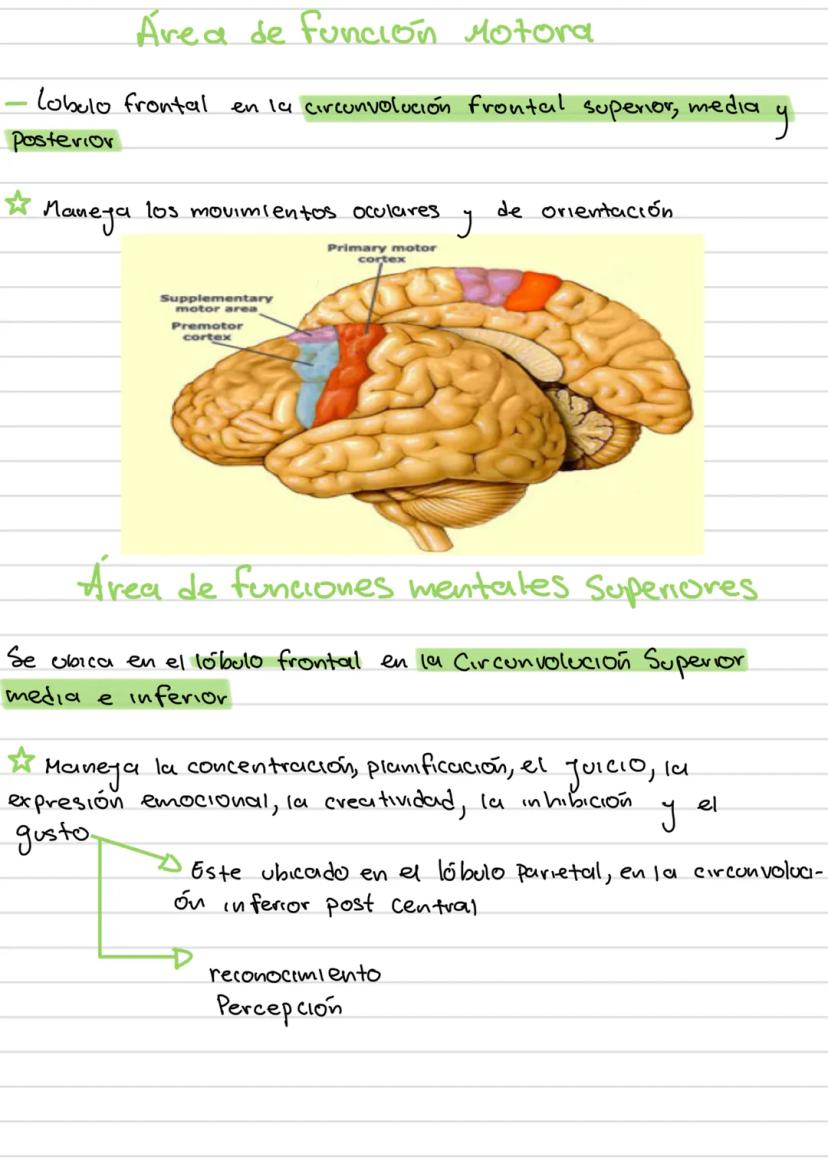 Área de función Motora
- Lobulo frontal en la circunvolución frontal superior, media y
Posterior
☆ Maneja los movimientos oculares y de orientación
Primary motor
cortex
Supplementary
motor area
Premotor
cortex
Área de funciones mentales Superiores
Se ubica en el lóbulo frontal en la Circunvolución Superior
media e inferior
☆ Maneja la concentración, planificación, el Juicio, la
expresión emocional, la creatividad, la inhibición y el
gusto
Este ubicado en el lóbulo Parietal, en la circunvoluci-
ón inferior post central
reconocimiento
Percepción